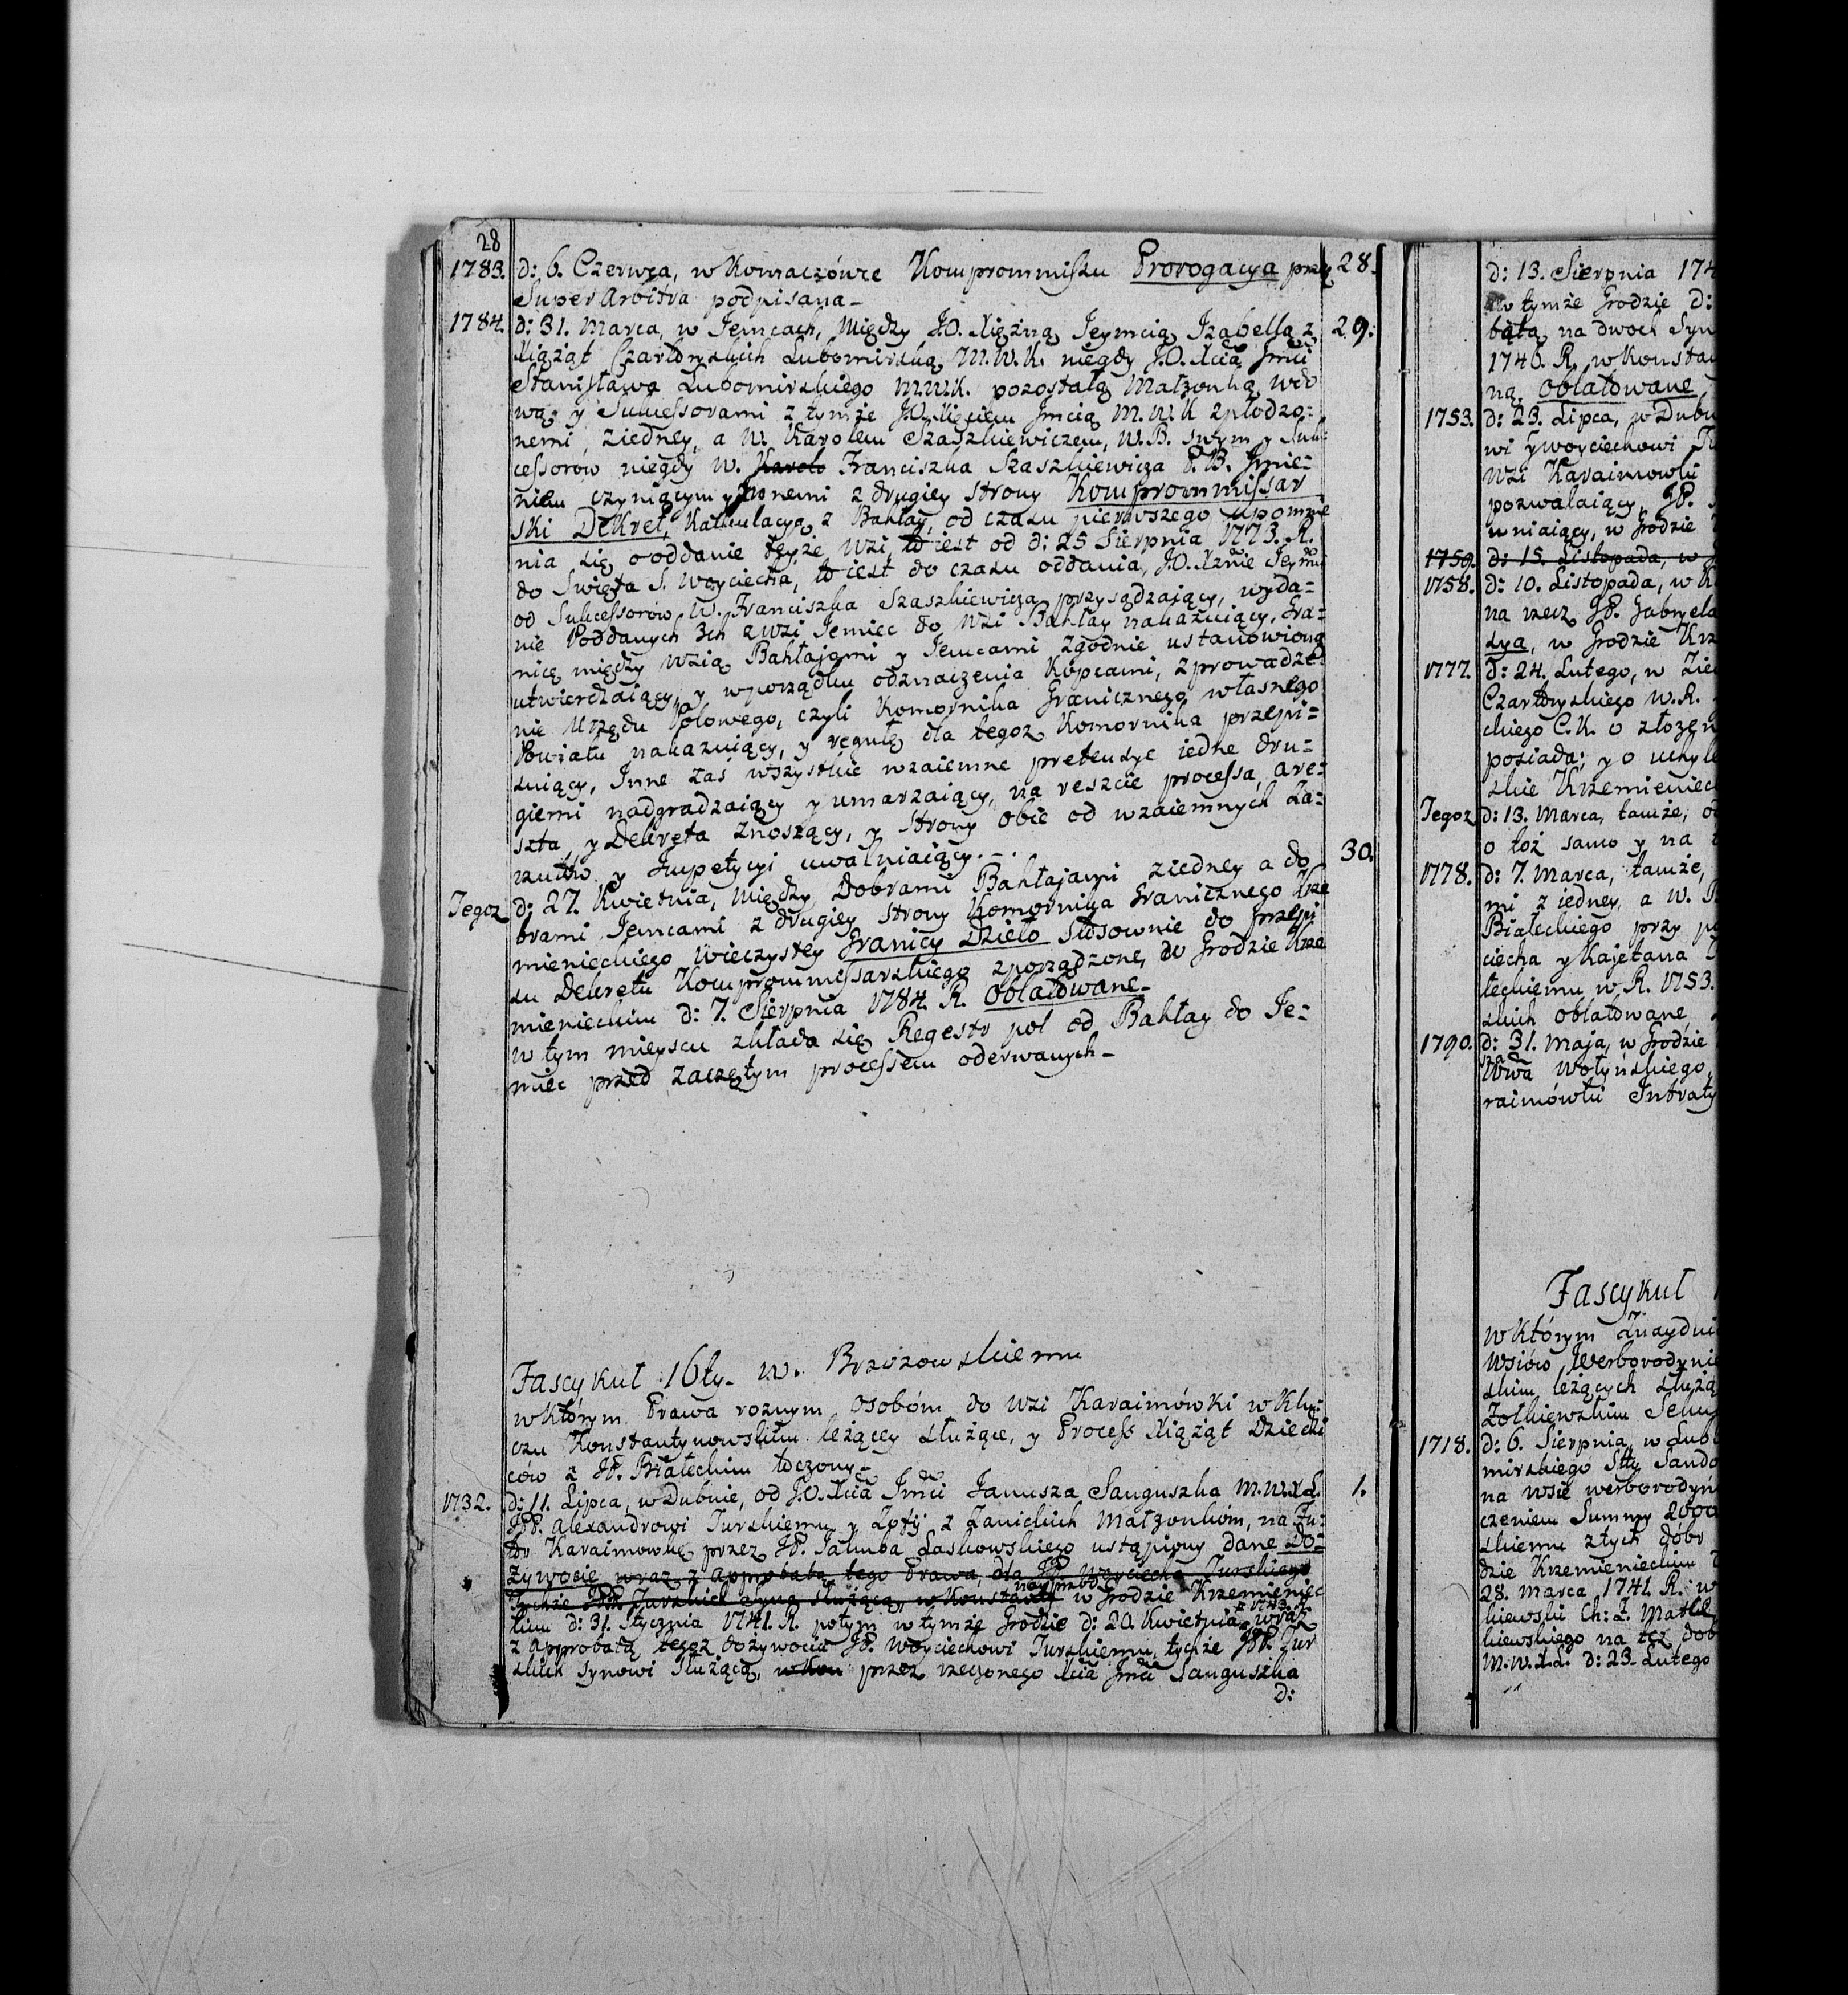 28
1783. d: 6. Czerwca, w Komaczówce Kompromissu Prorogacya przez 28.
Super Arbitra podpisana –
1784. d: 31. Marca, w Jemcach, Między J.O. Xiężną Jeymcią Izabellą z 29.
Xiążąt Czartoryskich Lubomirską M.W.K. niegdy J.O. Xcia Jmci
Stanisława Lubomirskiego M.W.K. pozostałą Małżonką wdo
wą, y Sukcessorami z tymże J.O. Xięciem Jmcią M.W.K spłodzo:
nemi, ziedney, a W. Karolem Szaszkiewiczem, W.B. swym y Suk:
cessorów niegdy W. Karola Franciszka Szaszkiewicza P.B. Jmie:
niem czyniącym y onemi z drugiey strony Kompromissar
ski Dekret, Kalkulacyą z Bahłay, od czasu pierwszego upomnie
nia się o oddanie teyże Wsi, to iest od d: 25 Sierpnia 1773. R.
do Swięta S. Woyciecha, to iest do czasu oddania, J.O. Xżnie Jeymci
od Sukcessorów W. Franciszka Szaszkiewicza przysądzaiący, wyda=
nie Poddanych 3ch z wsi Jemiec do Wsi Bahłay nakazuiący, Gra=
nicę między Wsią Bahłajami y Jemcami zgodnie ustanowioną
utwierdzaiący, y w porządku odznaczenia Kopcami, zprowadze:
nie Urzędu Polowego, czyli Komornika Granicznego własnego
Powiatu nakazuiący, y regułę dla tegoż Komornika przepi=
suiący, Inne zaś wszystkie wzaiemne pretensye iedne dru=
giemi nadgradzaiący y umarzaiący, na reszcie processa, are:
szta, y Dekreta znoszący, y Strony obie od wzaiemnych Za:
rzutów y Jmpetycyi uwalniaiący. –
Tegoż d: 27. Kwietnia, Między Dobrami Bahłajami ziedney a do 30.
brami Jemcami z drugiey strony Komornika Granicznego Krze
mienieckiego wieczystey Granicy Dzieło stosownie do przepi
su Dekretu Kompromissarskiego zporządzone, w Grodzie Krze
mienieckim d: 7. Sierpnia 1784. R. Oblatowane –
W tym mieyscu zkłada się Regestr pol od Bahłay do Je:
miec przed zaczętym processem oderwanych –
Fascykuł 16ty. W. Brzozowskiemu
w którym Prawa roznym osobóm do Wsi Karaimówki w Klu:
czu Konstantynowskim leżącey służące, y Process Xiążąt Dziedzi
ców z JP. Białeckim toczony –
1732. d: 11. Lipca, w Dubnie, od J.O. Xcia Jmci Janusza Sanguszka M.W.X.L. 1.
JP. Alexandrowi Turskiemu y Zofij z Zanickich Małżonkóm, na Fu:
tor Karaimowkę przez JP. Jakuba Laskowskiego ustąpiony dane Do=
żywocie wraz z approbatą tego Prawa, dla JP. Woyciecha Turskiego
Tychże JPP. Turskich Syna służącą, w Konstanty nayprzód w Grodzie Krzemieniec
kim d: 31. Stycznia 1741. R. potym w tymże Grodzie d: 20. Kwietnia 1743. R. wraz
z approbatą tegoż dożywocia JP. Woyciechowi Turskiemu, tychże JPP. Tur
skich synowi służącą, w Kon przez rzeczonego Xcia Jmci Sanguszka
d:
d: 13. Sierpnia 174
w tymże Grodzie d:
bątą, na dwoch Syn
1746. R. w Konstan
ną, Oblatowane
1753. d: 23. Lipca, w Dubn
wi y Woyciechowi
Wsi Karaimowki
pozwalaiący, JP.
wniaiący, w Grodzie
1759. d: 15. Listopada, w
1758. d: 10. Listopada, w
na rzecz JP. Gabryela
sya, w Grodzie Krz
1777. d: 24. Lutego, w
Czartoryskiego W.R.
ckiego C.K. o złożen
posiada; y o uchyle
skie Krzemieniec
Tegoż d: 13. Marca, tamże, od
o toż samo y na
1778. d: 7. Marca, tamże,
mi z iedney, a W.
Białeckiego przy
ciecha y Kajetana
łeckiemu w R. 1753.
skich oblatowane,
1790. d: 31. Maja, w Grodzie
Wwa Wołyńskiego,
raimówki Intraty
Fascykuł
w którym znayduie
Wsiów, Werborodynie
skim leżących służą
Zołkiewskim
1718. d: 6. Sierpnia, w Lub
mirskiego Stty Sando
na wsie Werborodyń
czeniem Summy 2000
skiemu z tych dobr
dzie Krzemienieckim
28. Marca, 1741. R. w
kiewski Ch: Z.
kiewskiego na też dob
M.W.X.L. d: 23. Lutego